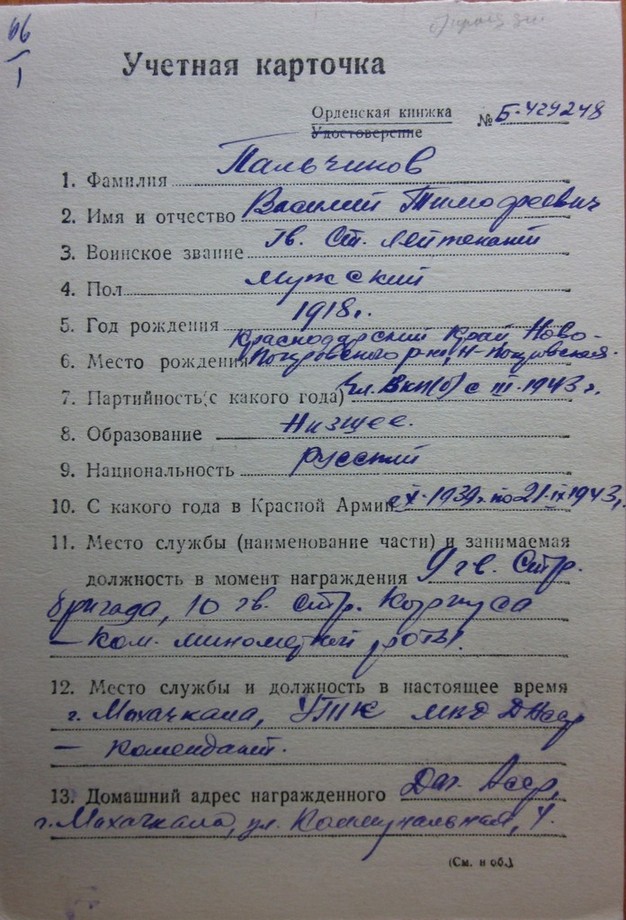 66
1
Учетная карточка
Орденская книжка
Удостоверение
№ Б-429248
1. Фамилия Пальчиков
2. Имя и отчество Василий Тимофеевич
3. Воинское звание Гв. Ст. Лейтенант
4. Пол мужской
5. Год рождения 1918г.
Краснодарский Край Ново-
6. Место рождения Покровского р-на, Н-Покровская.
7. Партийность (с какого года) Чл. ВКП(б) с III-1943г.
8. Образование Низшее.
9. Национальность русский
10. С какого года в Красной Армии с X-1939г. по 21-IX 1943г.
11. Место службы (наименование части) и занимаемая
должность в момент награждения 9 гв. Стр.
бригада, 10 гв. стр. Корпуса
– Ком. минометной роты.
12. Место службы и должность в настоящее время
г. Махачкала, МВД ДАССР
– комендант.
13. Домашний адрес награжденного Даг. Асср,
г. Махачкала, ул. Коммунальная, 4.
(См. н об.)